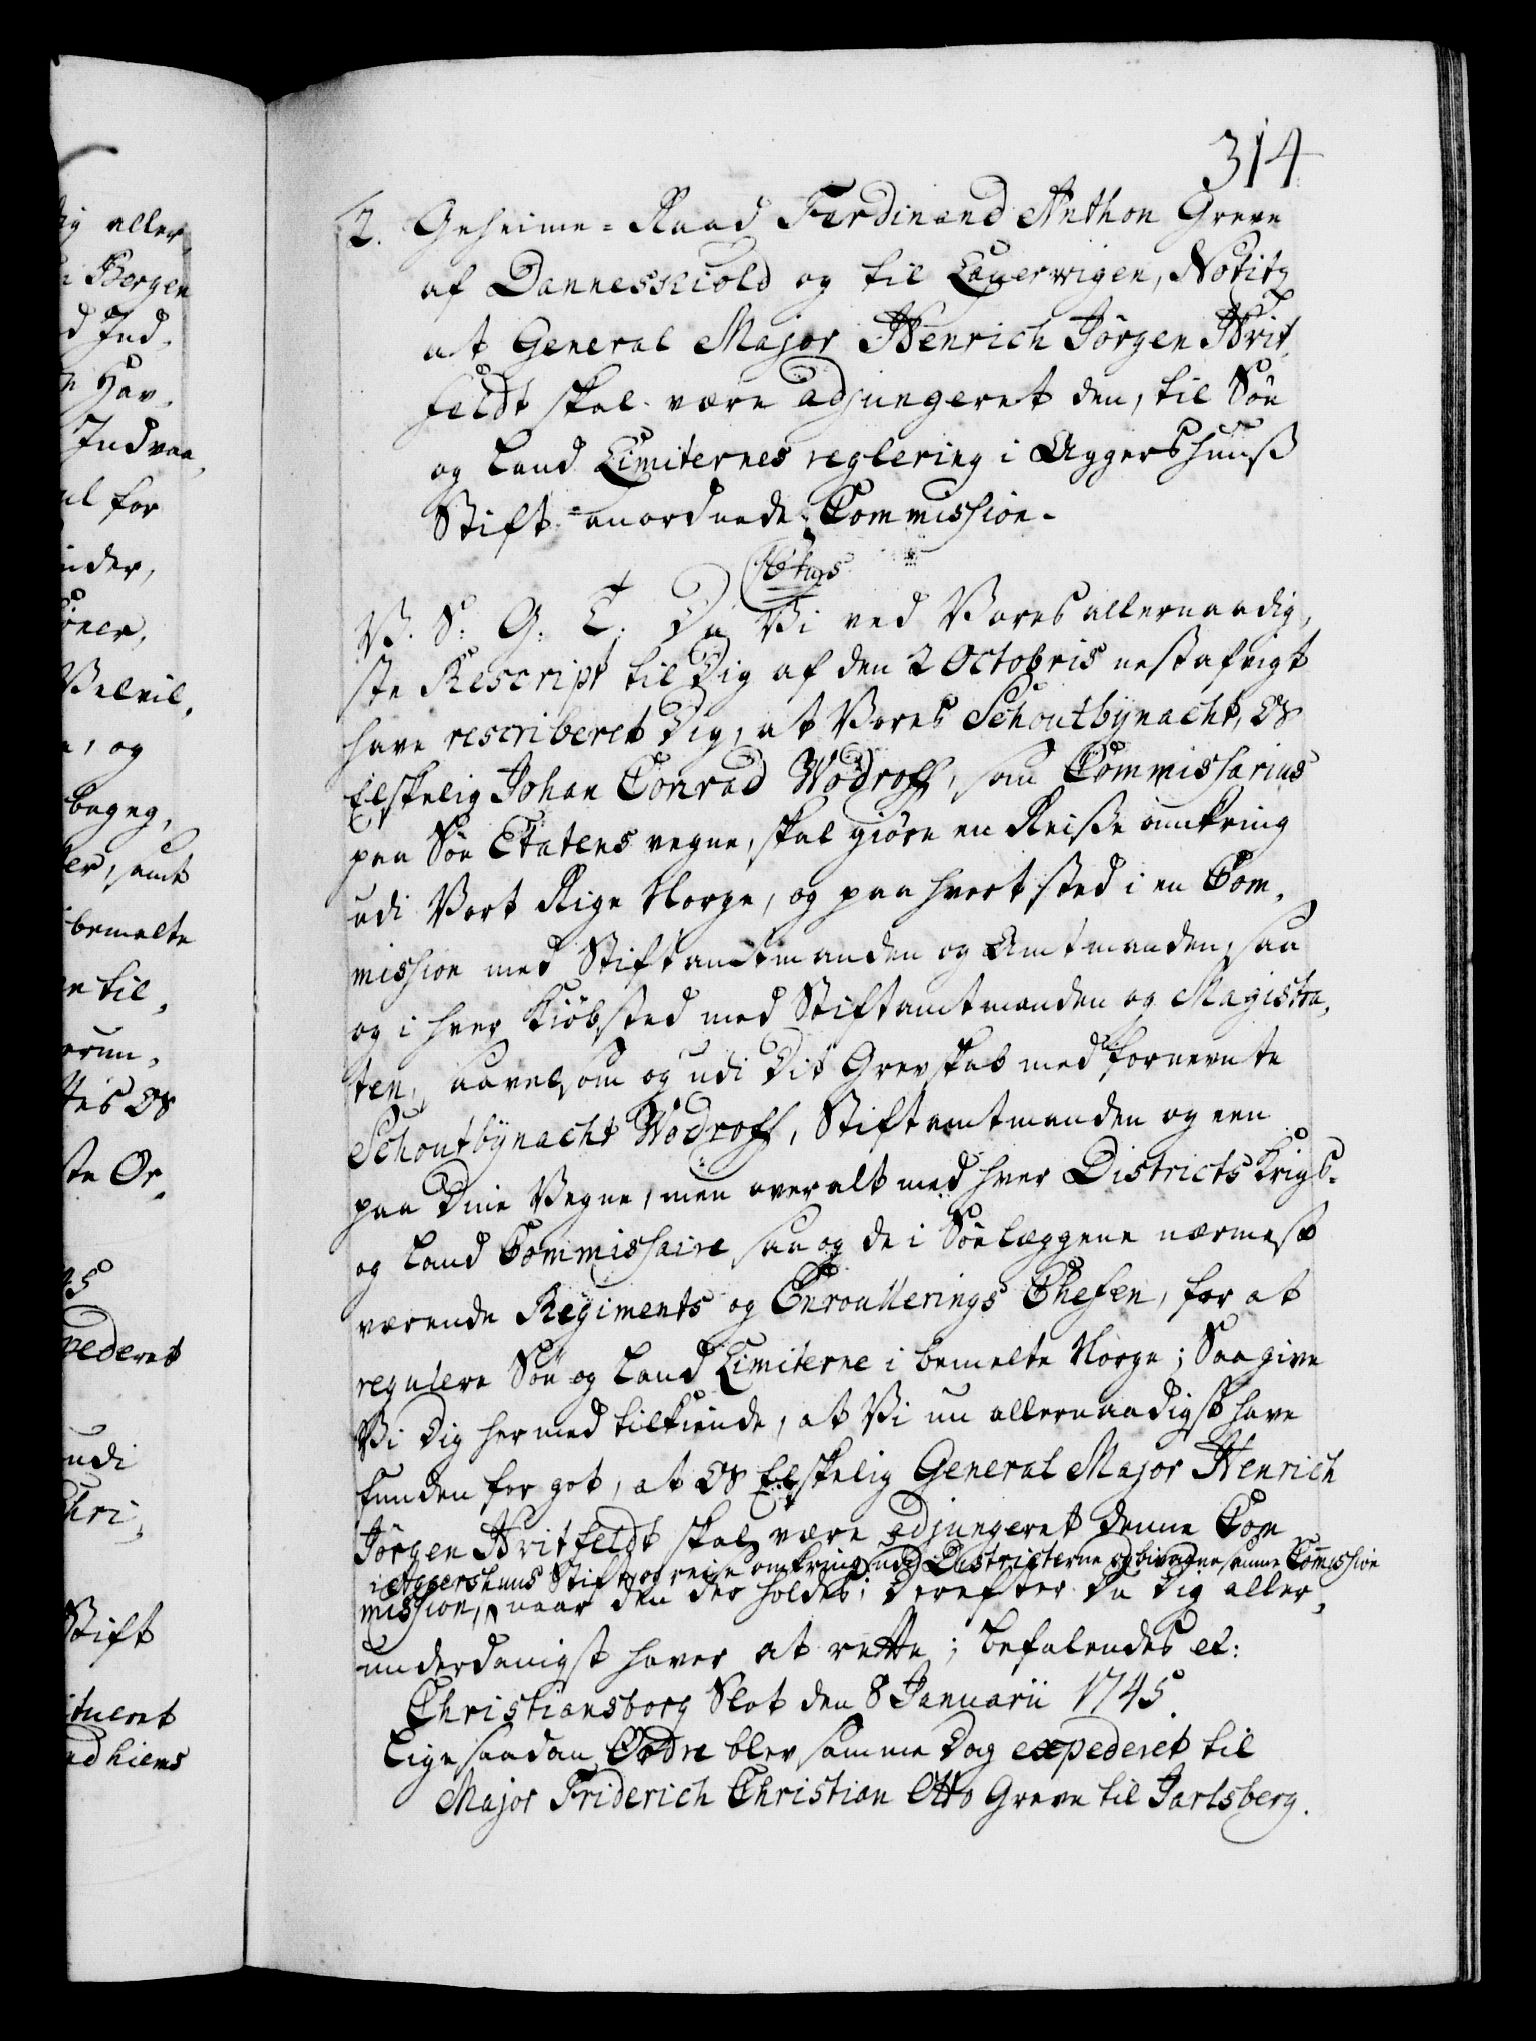 314
2. Geheime-Raad Ferdinand Anthon Greve
af Dannesskiold og til Laugerwigen, Notitz
at General Major Henrich Jörgen Hvit,
feldt skal være adjungeret den, til Söe
og Land Limiternes reglering i Aggershuuß
Stift anordnede Commission.
V. S. G. T. Da Vi ved Vores allernaadig,
ste Rescript til Dig af den 2 Octobris nestafvigt
have rescriberet Dig, at Vores Schoutbynacht, OS
Elskelig Johan Conrad Wodroff, som Commissarius
paa Söe Etatens vegne, skal giöre en Reiße omkring
udi Vort Rige Norge, og paa hvert sted i en Com,
mission med Stiftamtmanden og Amtmanden, saa
og i hver Kiöbsted med Stiftamtmanden og Magistra,
ten, saavelsom og udi Dit Grevskab med fornevnte
Schoutbynacht Wodroff, Stiftamtmanden og een
paa Dine Vegne, men overalt med hver Districts Krigs-
og Land Commissaire, saa og de i Söelæggene nærmest
værende Regiments og Enroullerings Chefen, for at
regulere Söe og Land Limiterne i bemelte Norge; Saa give
Vi Dig hermed tilkiende, at Vi nu allernaadigst have
funden for got, at OS Elskelig General Major Henrich
Jörgen Hvitfeldt skal være adjungeret denne Com
i Aggershuus Stift, og reise omkring udi Districterne og bivaane samme Comission
mission, naar den der holdes; Derefter Du Dig aller,
underdanigst haver at rette; Befalendes et:
Christiansborg Slot den 8 Januarii 1745.
Lige saadan Ordre blev samme Dag expederet til
Major Friderich Christian Otto Greve til Jarlsberg.